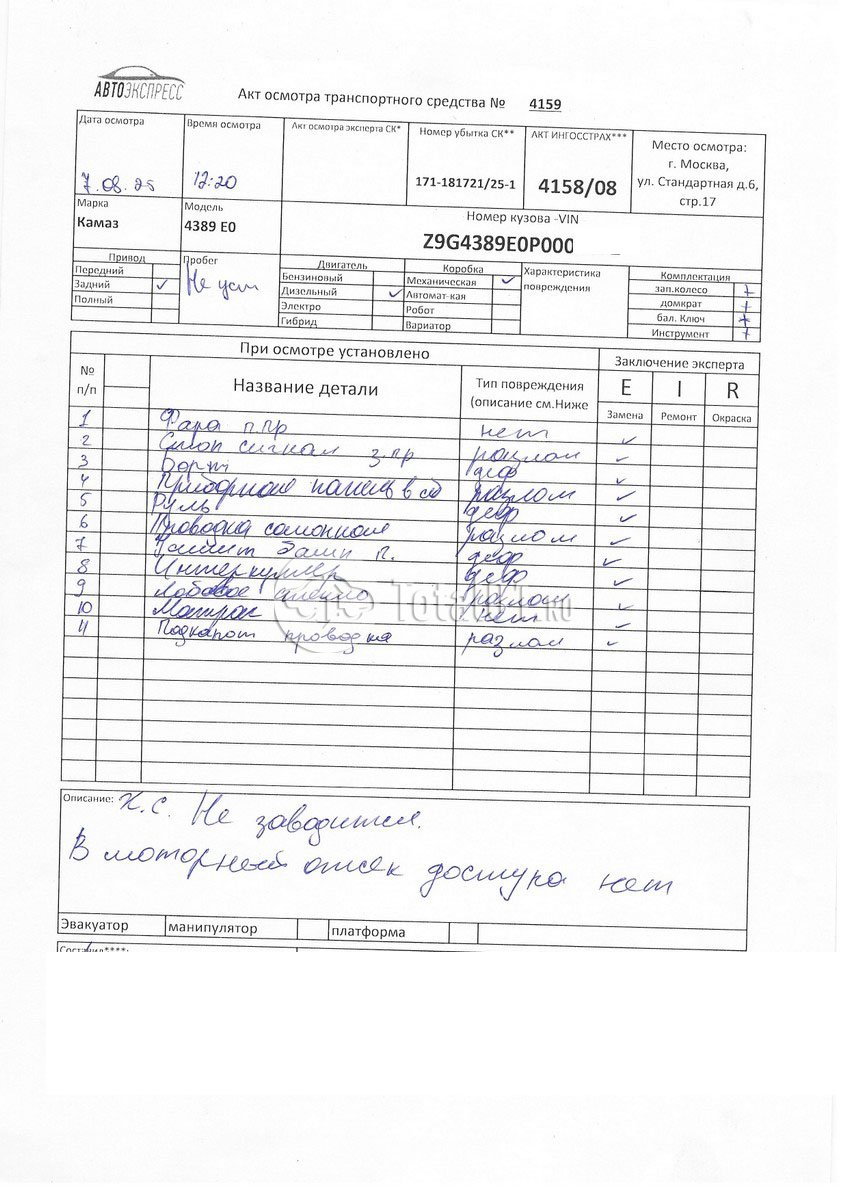 АВТОЭКСПРЕСС
Акт осмотра транспортного средства № 4159
Дата осмотра
Время осмотра
Акт осмотра эксперта СК*
Номер убытка СК**
АКТ ИНГОССТРАХ***
Место осмотра:
г. Москва,
ул. Стандартная д.6,
стр.17
7.08.25
12:20
171-181721/25-1
4158/08
Марка
Камаз
Модель
4389 E0
Номер кузова -VIN
Z9G4389E0P000
Привод
Передний
Задний ✓
Полный
Пробег
Не уст
Двигатель
Бензиновый
Дизельный ✓
Электро
Гибрид
Коробка
Механическая ✓
Автомат-кая
Робот
Вариатор
Характеристика
повреждения
Комплектация
зап.колесо +
домкрат +
бал. Ключ +
Инструмент +
При осмотре установлено
Заключение эксперта
№
п/п
Название детали
Тип повреждения
(описание см.Ниже
E I R
Замена Ремонт Окраска
1 Фара п.пр нет ✓
2 Стоп сигнал з.пр разлом ✓
3 Борт деф ✓
4 Приборная панель в сб разлом ✓
5 Руль деф ✓
6 Проводка салонная разлом ✓
7 п. деф ✓
8 Интеркуллер деф ✓
9 Лобовое стекло разлом ✓
10 Матрас нет ✓
11 Подкапот проводка разлом ✓
Total01.RU
Описание: Х.С. Не заводится.
В моторный отсек доступа нет
Эвакуатор манипулятор платформа
Составил****: